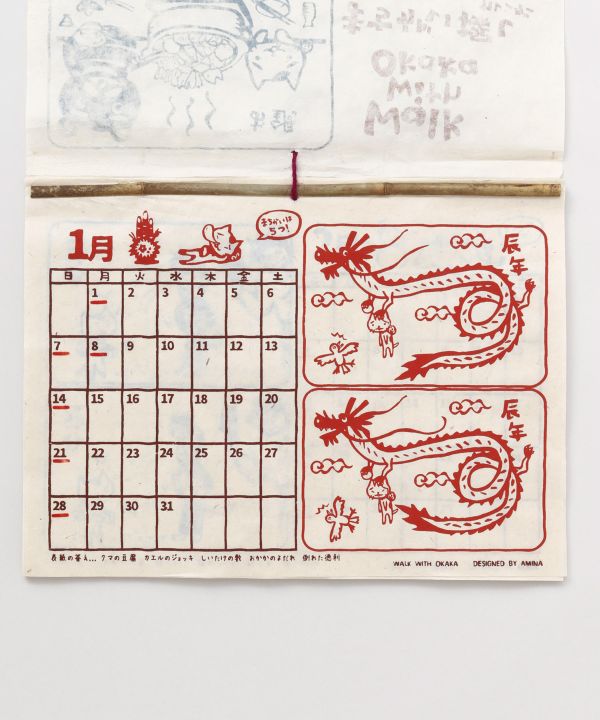 Okaka
Milk
Malk
1月
まちがいは
5つ!
日 月 火 水 木 金 土
1 2 3 4 5 6
7 8 9 10 11 12 13
14 15 16 17 18 19 20
21 22 23 24 25 26 27
28 29 30 31
辰年
辰年
表紙の答え... クマの豆腐 カエルのジョッキ しいたけの数 おかかのよだれ 倒れた徳利
WALK WITH OKAKA DESIGNED BY AMINA